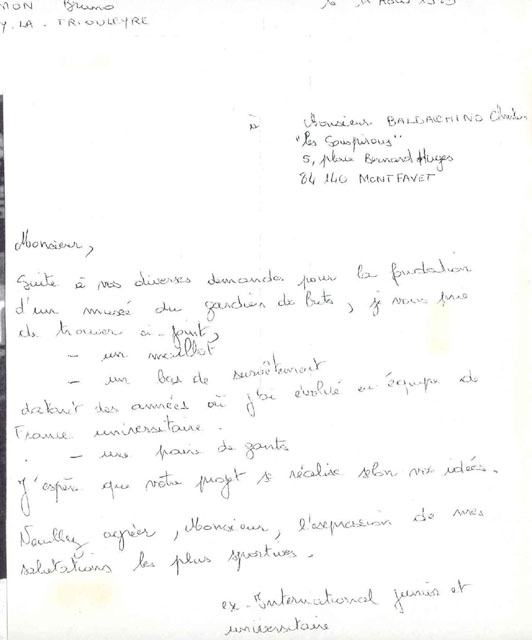 MON Bruno
Y. LA. TRIOULEYRE
le 11 Août
à
Monsieur BALDACHINO Christian
"Les Souspirous"
5, place Bernard Huges
84 140 MONTFAVET
Monsieur,
Suite à vos diverses demandes pour la fondation
d'un musée du gardien de buts, je vous prie
de trouver ci-joint,
- un maillot
- un bas de survêtement
datant des années où j'ai évolué en équipe de
France universitaire.
- une paire de gants
J'espère que votre projet se réalise selon vos idées.
Veuillez agréer, Monsieur, l'expression de mes
salutations les plus sportives.
ex. International junior et
universitaire